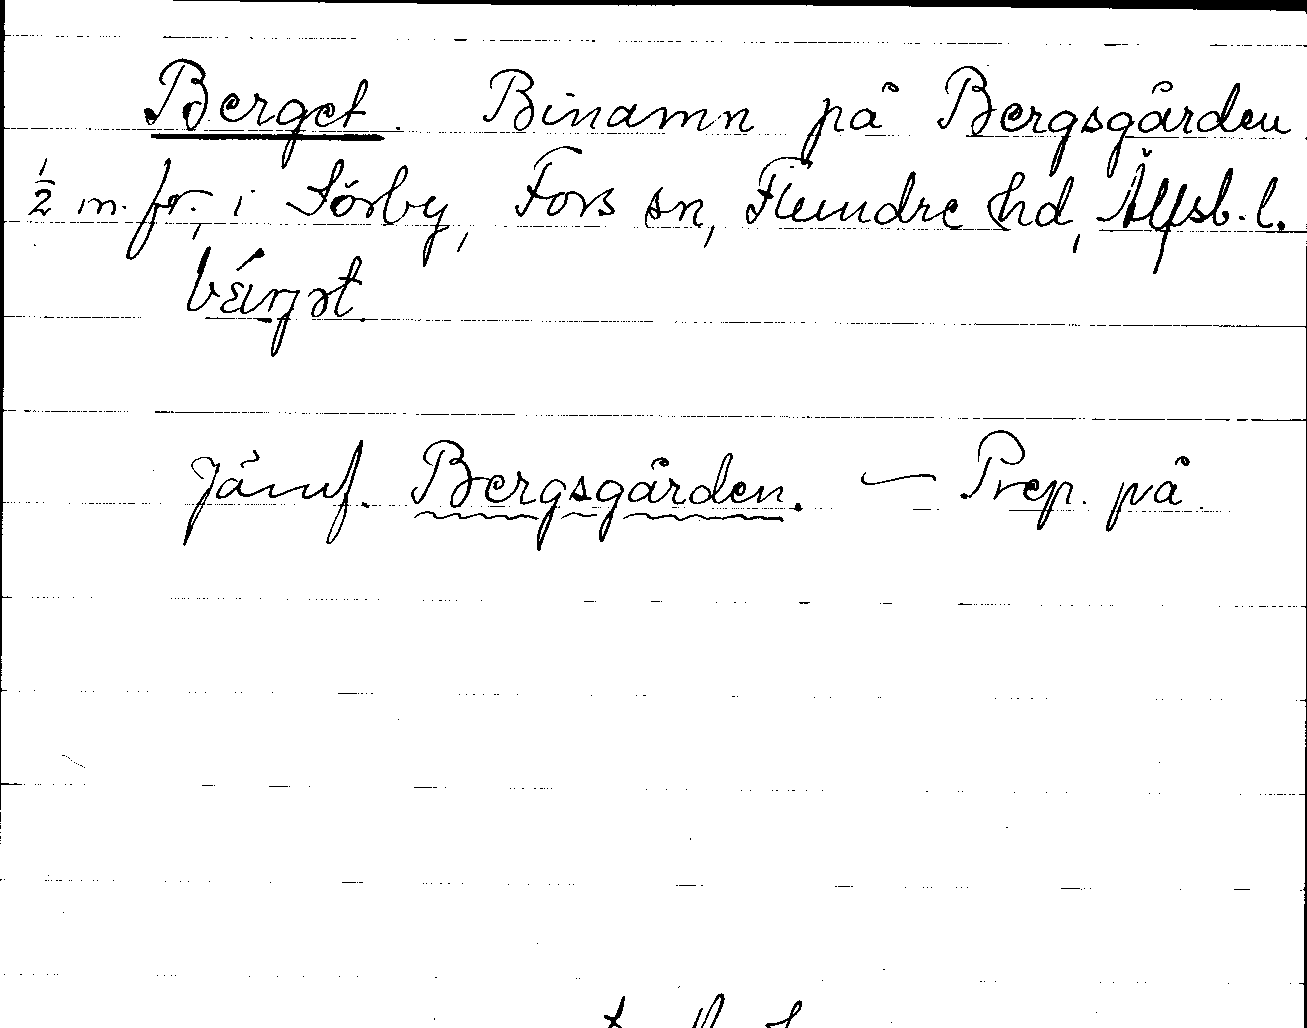 Berget. Binamn på Bergsgården
½ m. fr., i Sörby, Fors sn, Flundre hd, Älfsb. l.
Jämf. Bergsgården. — Prep. på